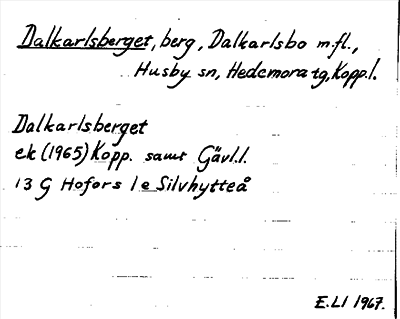 Dalkarlsberget, berg, Dalkarlsbo m.fl.,
Husby sn, Hedemora tg, Kopp.l.
Dalkarlsberget
ek (1965) Kopp. samt Gävl.l.
13 G Hofors 1 e Silvhytteå
E.LI 1967.